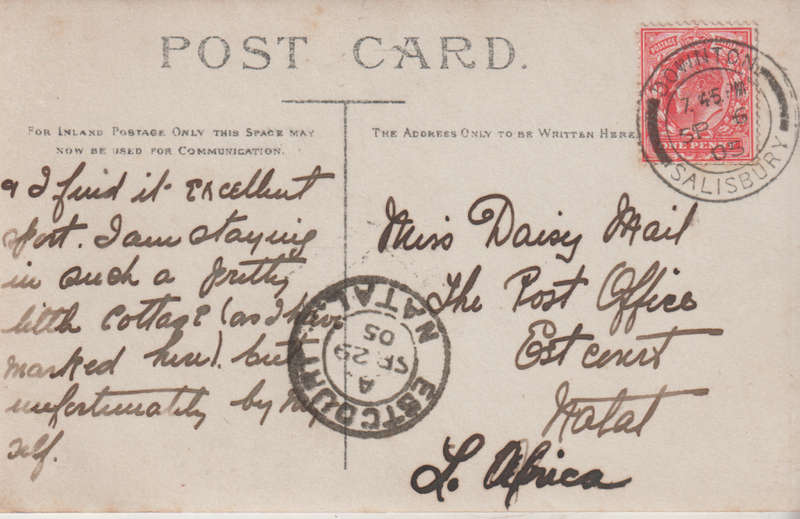 POST CARD.
FOR INLAND POSTAGE ONLY THIS SPACE MAY
NOW BE USED FOR COMMUNICATION.
THE ADDRESS ONLY TO BE WRITTEN HERE.
POSTAGE
ONE PENNY
DOWNTON
7.45 PM
SP 6
05
SALISBURY
& I find it excellent
sport. I am staying
in such a pretty
little cottage (as I have
marked here). but
unfortunately by my
self.
Miss Daisy Mail
The Post Office
Estcourt
Natal
S. Africa
ESTCOURT
NATAL
A
SP 29
05